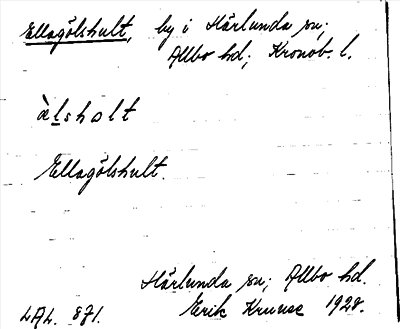 Ellagölshult, by i Härlunda sn;
Allbo hd; Kronob. l.
àlsholt
Ellagölshult.
Härlunda sn; Allbo hd.
LAL. 871. Erik Kruuse 1928.